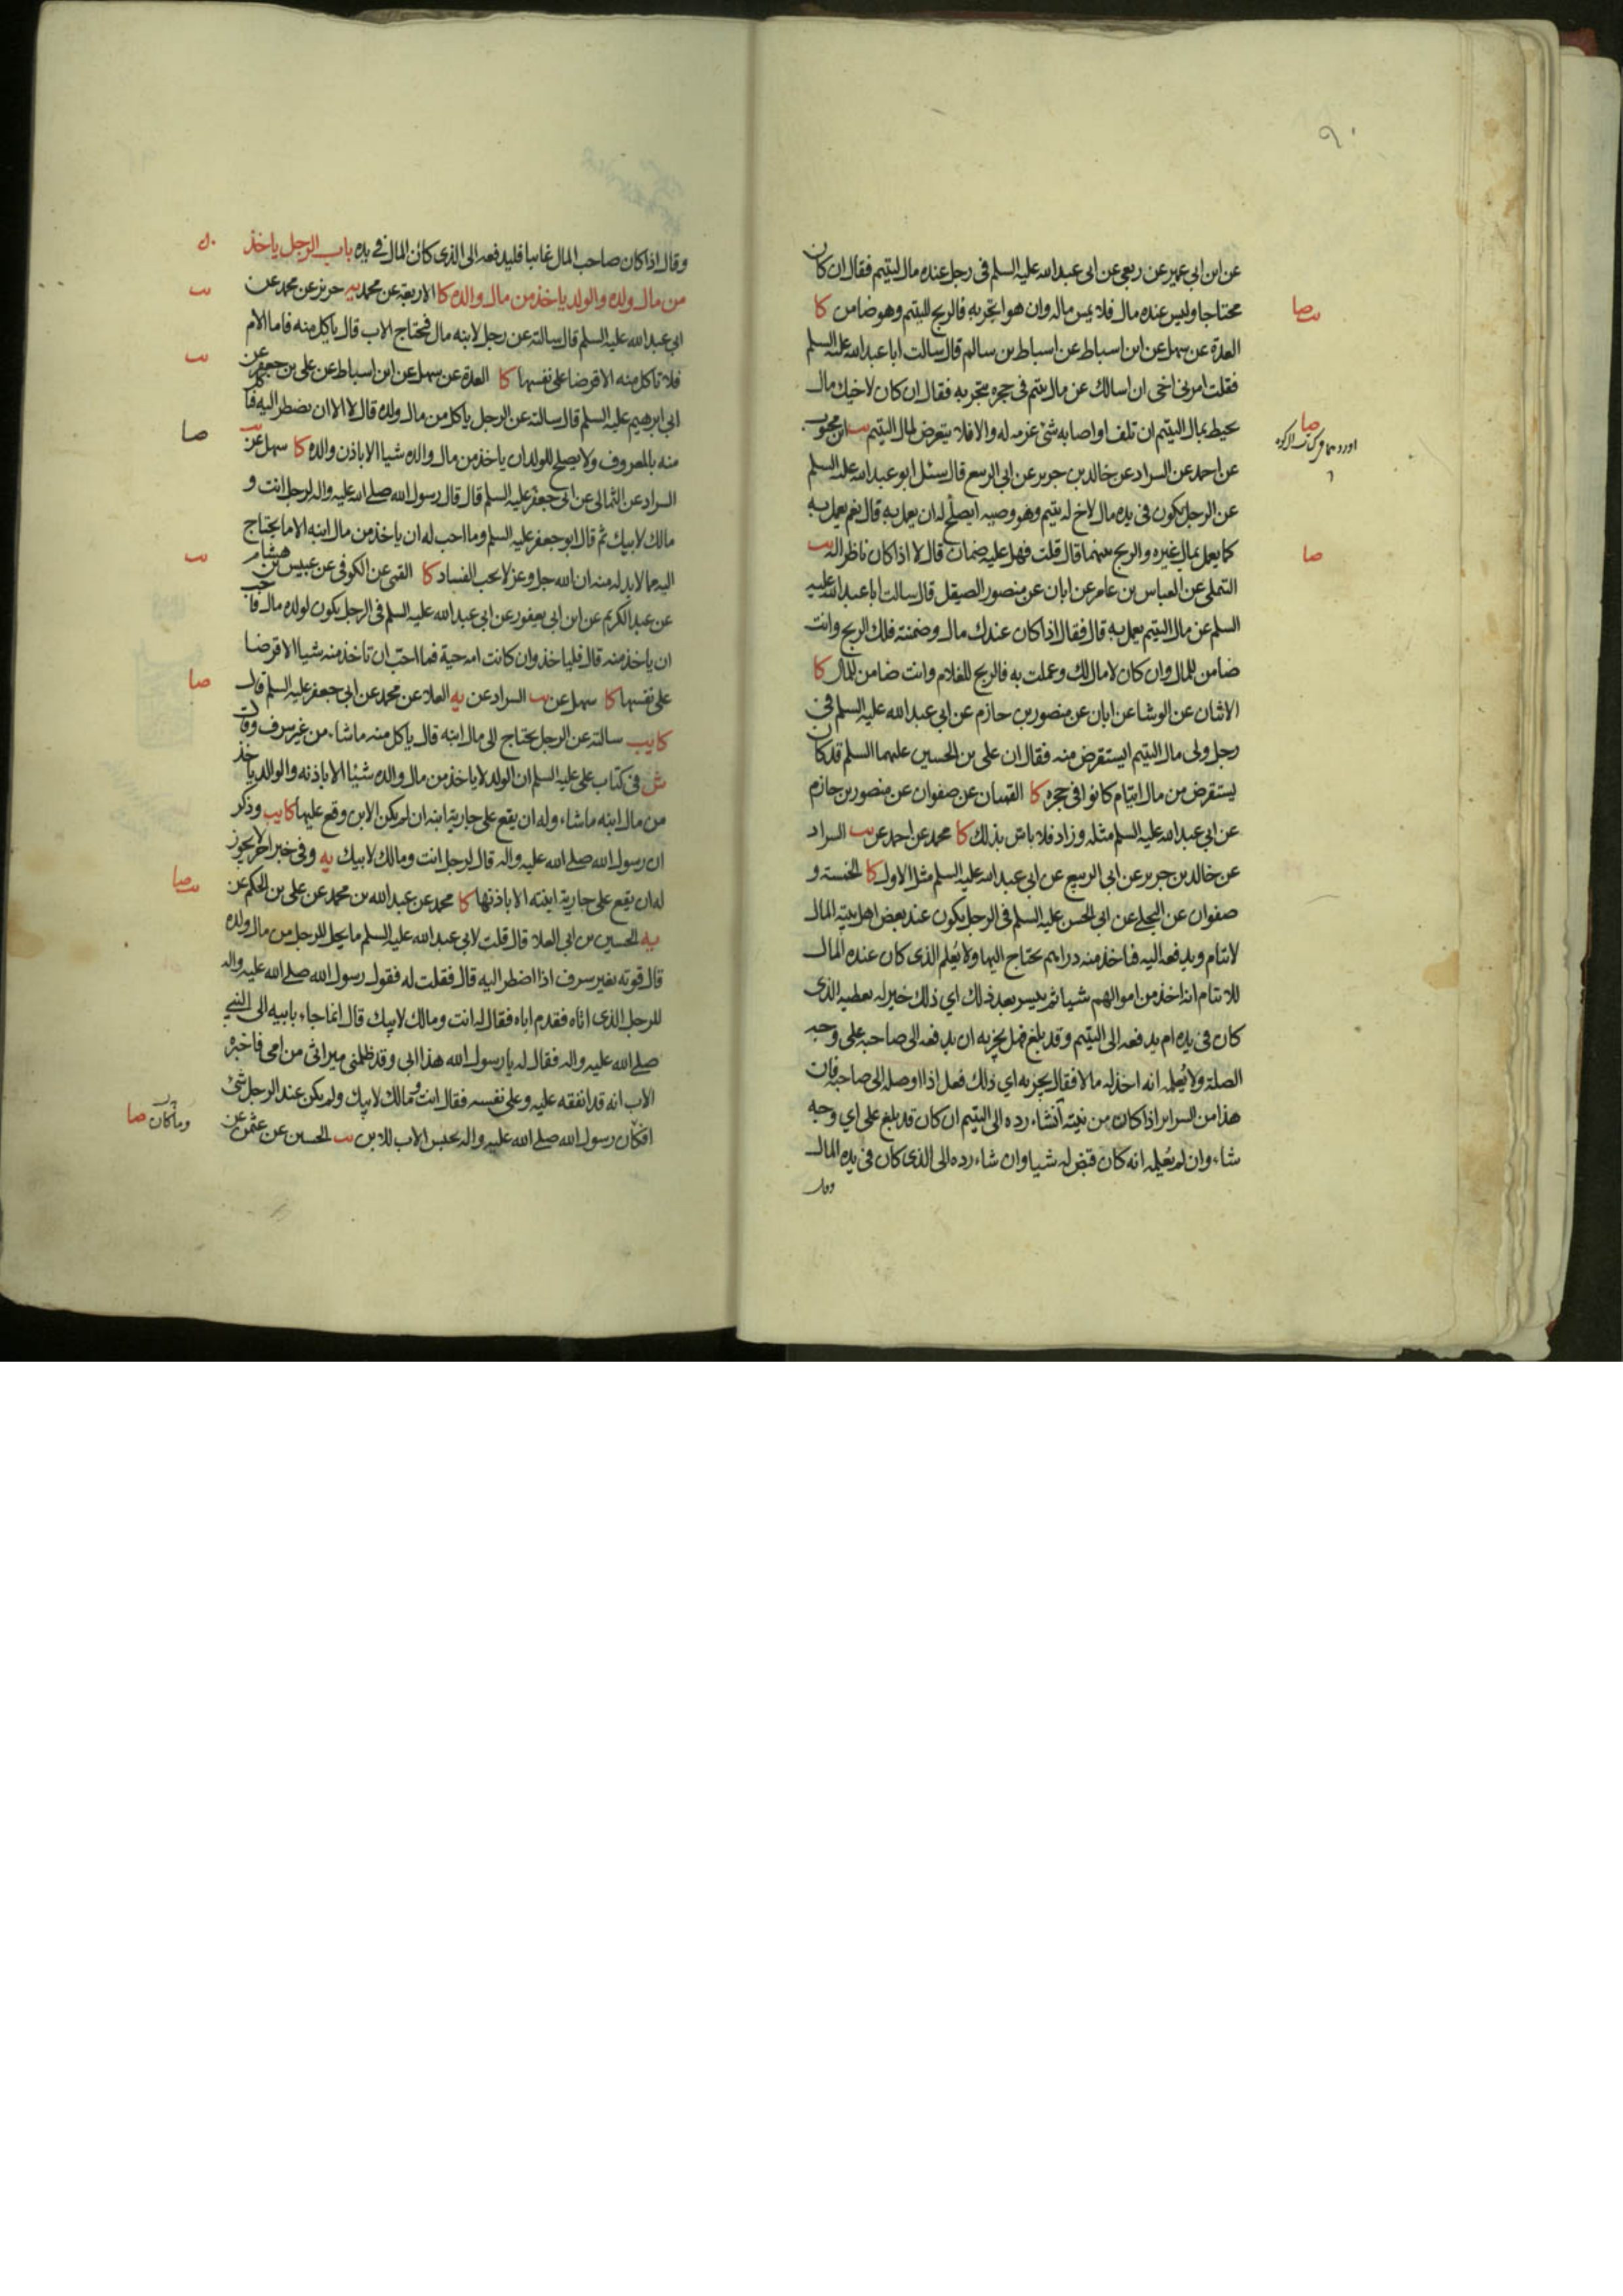 ٩٠
عن ابن ابي عمير عن ربعي عن ابي عبدالله عليه السلم في رجل عنده مال ليتيم فقال ان كان
محتاجا وليس عنده مال فلا يمس ماله وان هو اتجر به فالربح لليتيم وهو ضامن كا
العدة عن سهل عن ابن اسباط عن اسباط بن سالم قال سالت ابا عبدالله عليه السلم
فقلت امرني اخي ان اسالك عن مال يتيم في حجره يتجر به فقال ان كان لاخيك مال
يحيط بمال اليتيم ان تلف او اصابه شئ غرمه له والا فلا يتعرض لمال اليتيم يب ابن محبوب
عن احمد عن السراد عن خالد بن جرير عن ابي الربيع قال سئل ابو عبدالله عليه السلم
عن الرجل يكون في يده مال لاخ له يتيم وهو وصيه ايصلح له ان يعمل به قال نعم يعمل به
كما يعمل بمال غيره والربح بينهما قال قلت فهل عليه ضمان قال لا اذا كان ناظرا له يب
التملي عن العباس بن عامر عن ابان عن منصور الصيقل قال سالت ابا عبدالله عليه
السلم عن مال اليتيم يعمل به قال فقال اذا كان عندك مال وضمنته فلك الربح وانت
ضامن للمال وان كان لا مال لك وعملت به فالربح للغلام وانت ضامن للمال كا
الاثنان عن الوشا عن ابان عن منصور بن حازم عن ابي عبدالله عليه السلم في
رجل ولي مال اليتيم ايستقرض منه فقال ان علي بن الحسين عليهما السلم قد كان
يستقرض من مال ايتام كانوا في حجره كا القميان عن صفوان عن منصور بن حازم
عن ابي عبدالله عليه السلم مثله وزاد فلا باس بذلك كا محمد عن احمد عن يب السراد
عن خالد بن جرير عن ابي الربيع عن ابي عبدالله عليه السلم مثل الاول كا الخمسة و
صفوان عن البجلي عن ابي الحسن عليه السلم في الرجل يكون عند بعض اهل بيته المال
لايتام ويدفعه اليه فياخذ منه دراهم يحتاج اليها ولا يعلم الذي كان عنده المال
للايتام انه اخذ من اموالهم شيا ثم يتيسر بعد ذلك اي ذلك خير له يعطيه الذي
كان في يده ام يدفعه الى اليتيم وقد بلغ فهل يجزيه ان يدفعه الى صاحبه على وجه
الصلة ولا يعلمه انه اخذ له مالا فقال يجزيه اي ذلك فعل اذا اوصله الى صاحبه فان
هذا من السراير اذا كان من نيته ان شاء رده الى اليتيم ان كان قد بلغ على اي وجه
شاء وان لم يعلمه انه كان قبض له شيا وان شاء رده الى الذي كان في يده المال
وقال
وقال اذا كان صاحب المال غايبا فليدفعه الى الذي كان المال في يده باب الرجل ياخذ
من مال ولده والولد ياخذ من مال والده كا الاربعة عن محمد يب حريز عن محمد عن
ابي عبدالله عليه السلم قال سالته عن رجل لابنه مال فيحتاج الاب قال ياكل منه فاما الام
فلا تاكل منه الا قرضا على نفسها كا العدة عن سهل عن ابن اسباط عن علي بن جعفر عن
ابي ابرهيم عليه السلم قال سالته عن الرجل ياكل من مال ولده قال لا الا ان يضطر اليه فياكل
منه بالمعروف ولا يصلح للولد ان ياخذ من مال والده شيا الا باذن والده كا سهل عن يب
السراد عن الثمالي عن ابي جعفر عليه السلم قال قال رسول الله صلى الله عليه واله لرجل انت و
مالك لابيك ثم قال ابو جعفر عليه السلم وما احب له ان ياخذ من مال ابنه الا ما يحتاج
اليه مما لا بد له منه ان الله جل وعز لا يحب الفساد كا القمي عن الكوفي عن عبيس بن هشام
عن عبد الكريم عن ابن ابي يعفور عن ابي عبدالله عليه السلم في الرجل يكون لولده مال فاحب
ان ياخذ منه قال فلياخذ وان كانت امه حية فما احب ان تاخذ منه شيا الا قرضا
على نفسها كا سهل عن يب السراد عن يه العلا عن محمد عن ابي جعفر عليه السلم قال
كا يب سالته عن الرجل يحتاج الى مال ابنه قال ياكل منه ما شاء من غير سرف وقال
ش في كتاب علي عليه السلم ان الولد لا ياخذ من مال والده شيئا الا باذنه والوالد ياخذ
من مال ابنه ما شاء وله ان يقع على جارية ابنه ان لم يكن الابن وقع عليها كا يب وذكر
ان رسول الله صلى الله عليه واله قال لرجل انت ومالك لابيك يه وفي خبر اخر لا يجوز
له ان يقع على جارية ابنته الا باذنها كا محمد عن عبدالله بن محمد عن علي بن الحكم عن
يه الحسين بن ابي العلا قال قلت لابي عبدالله عليه السلم ما يحل للرجل من مال ولده
قال قوته بغير سرف اذا اضطر اليه قال فقلت له فقول رسول الله صلى الله عليه واله
للرجل الذي اتاه فقدم اباه فقال له انت ومالك لابيك قال انما جاء بابيه الى النبي
صلى الله عليه واله فقال له يا رسول الله هذا ابي وقد ظلمني ميراثي من امي فاخبره
الاب انه قد انفقه عليه وعلى نفسه فقال انت ومالك لابيك ولم يكن عند الرجل شئ
افكان رسول الله صلى الله عليه واله يحبس الاب للابن يب الحسين عن عثمن عن